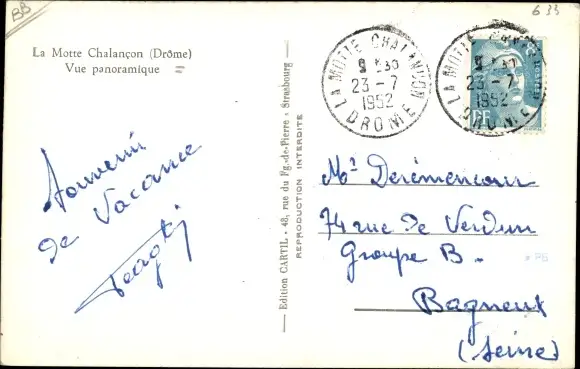 BB
633
La Motte Chalançon (Drôme)
Vue panoramique
Souvenir
de Vacance
Edition CARTIL - 48, rue du Fg.-de-Pierre - Strasbourg
REPRODUCTION INTERDITE
LA MOTTE CHALANÇON
9 H 30
23 - 7
1952
DROME
LA MOTTE
23 - 7
1952
DROME
RF
Mr Derémencour
74 rue de Verdun
Groupe B.
Bagneux
(Seine)